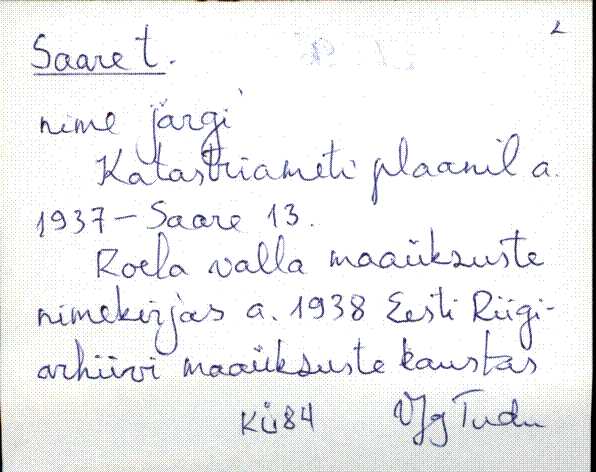 2
Saare t.
nime järgi
Katastriameti plaanil a.
1937 - Saare 13.
Roela valla maaüksuste
nimekirjas a. 1938 Eesti Riigi-
arhiivi maaüksuste kaustas
KÜ84 VJg Tudu